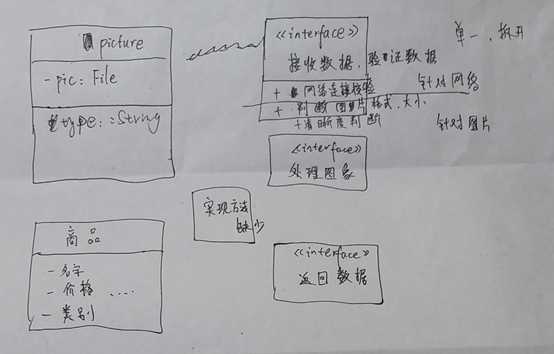 picture
- pic: File
type: :String
<<interface>>
接收数据、验证数据
+ 网络连接校验
+ 判断图片格式、大小
+ 清晰度判断
单一、拆开
针对网络
针对图片
<<interface>>
处理图象
实现方法
缺少
商品
- 名字
- 价格 ....
- 类别
<<interface>>
返回数据